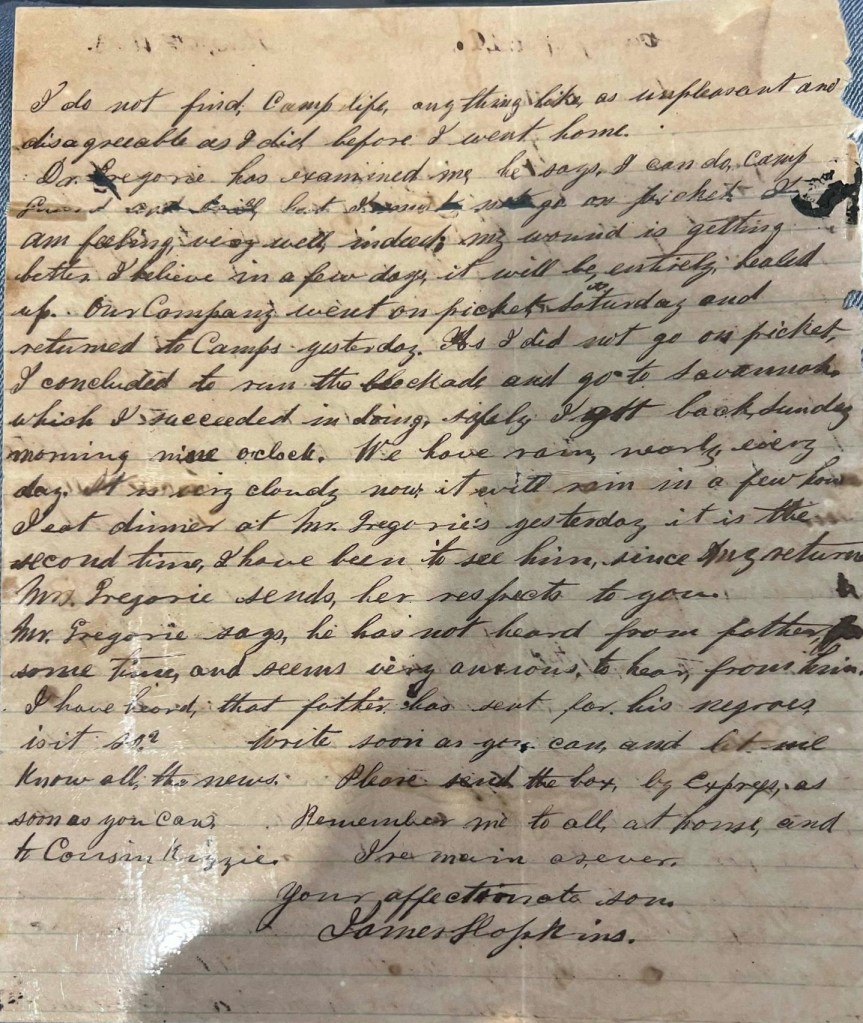 I do not find, Camp life, any thing like, as unpleasant and
disagreeable as I did before I went home.
Dr. Gregorie has examined me, he says, I can do, camp
Guard and drill, but I must not go on picket. I
am feeling, very well, indeed, my wound is getting
better. I believe in a few days, it will be, entirely, healed
up. Our Company went on picket, Saturday and
returned to Camps yesterday. As I did not go on picket,
I concluded to run the blockade and go to Savannah,
which I succeeded in doing, safely I gott back, Sunday
morning nine o'clock. We have rain, nearly, every
day. It is very cloudy now, it will rain in a few hou
I eat dinner at Mr. Gregorie's yesterday it is the
second time, I have been to see him, since my return
Mrs. Gregorie sends, her respects to you.
Mr. Gregorie says, he has not heard from father,
some time, and seems very anxious, to hear, from him.
I have heard, that father has sent for his negroes,
is it so? Write soon as you can, and let me
Know all, the news. Please send the box, by Express, as
soon as you can, Remember me to all, at home, and
to Cousin Kizzie. I remain as, ever.
Your affectionate son.
James Hopkins.